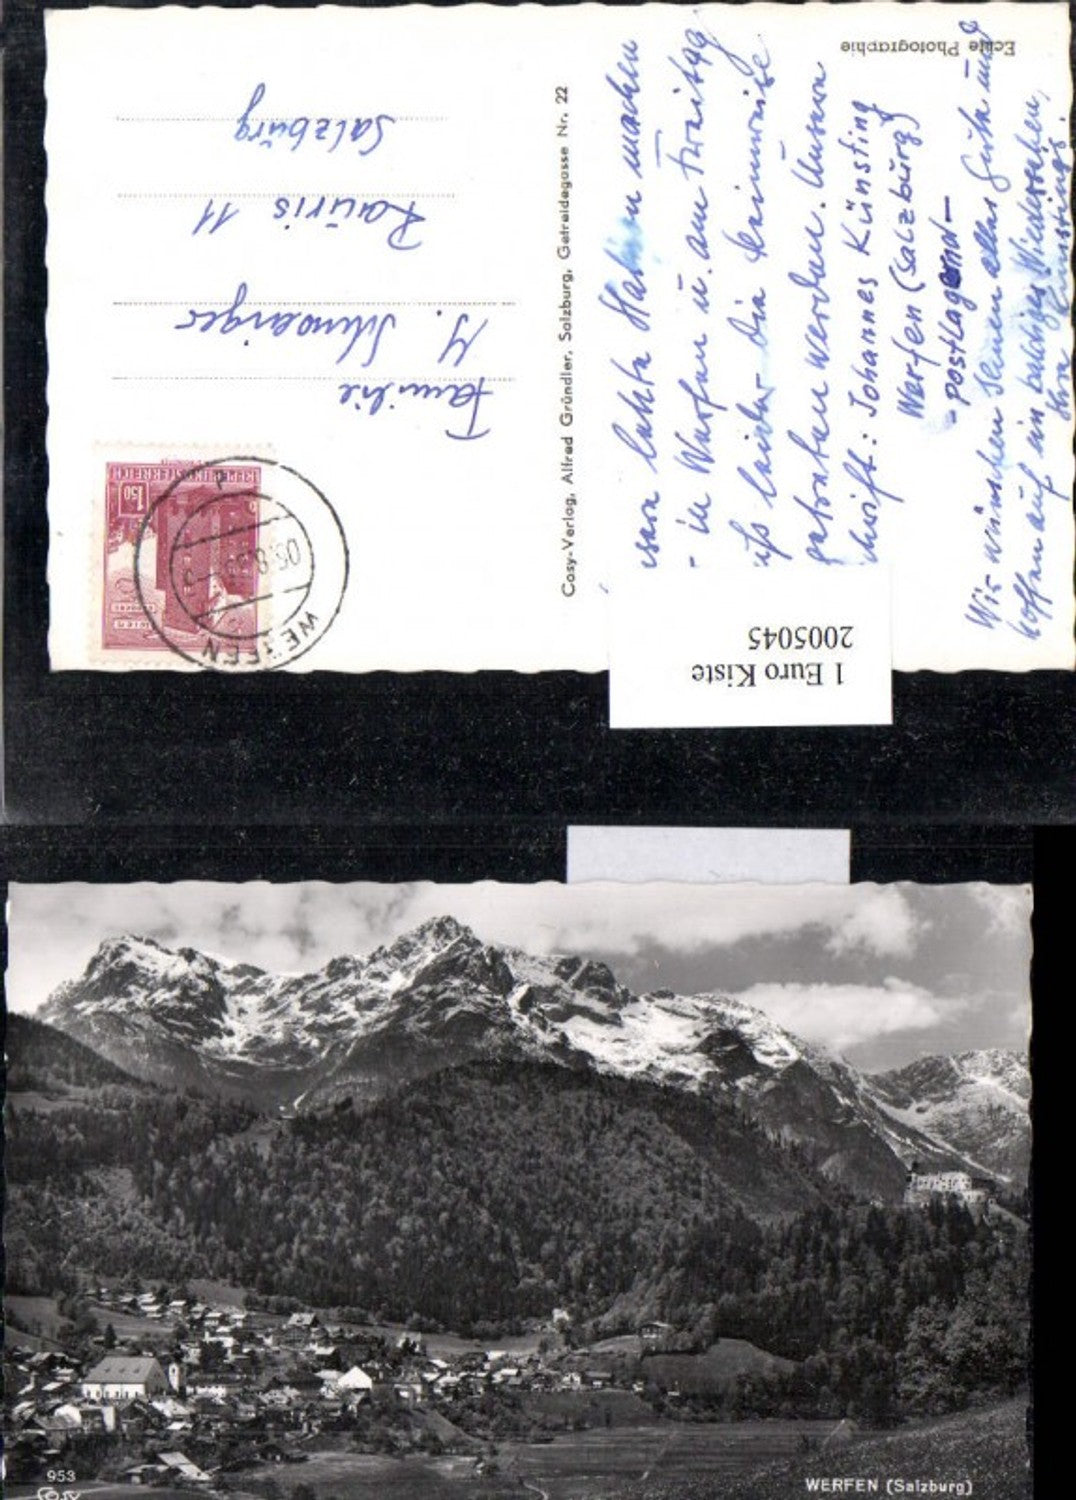 Echte Photographie
Salzburg
Rauris 11
M. Schwaiger
Familie
Cosy-Verlag, Alfred Gründler, Salzburg, Getreidegasse Nr. 22
REPUBLIK ÖSTERREICH
1.50
WIEN
WERFEN
letzte Station machen
- in Werfen u. am Freitag
leider die Heimreise
getreten werden. Unsere
schrift: Johannes Künsting
Werfen (Salzburg)
- postlagernd -
Wir wünschen Ihnen alles Gute und
hoffen auf ein baldiges Wiedersehen,
Ihre Künstings.
1 Euro Kiste
2005045
953
Cosy
WERFEN (Salzburg)